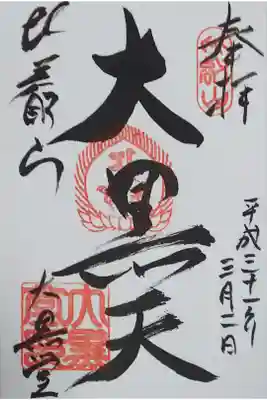 奉拝
平成三十一年
三月二日
大黒天
比叡山
大黒堂